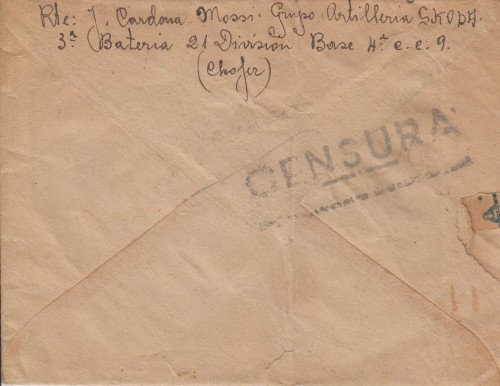 Rte: J. Cardona Mossi. Grupo Artilleria SKODA.
3ª Bateria 21 División Base 4ª c. c. 9.
(Chofer)
CENSURA